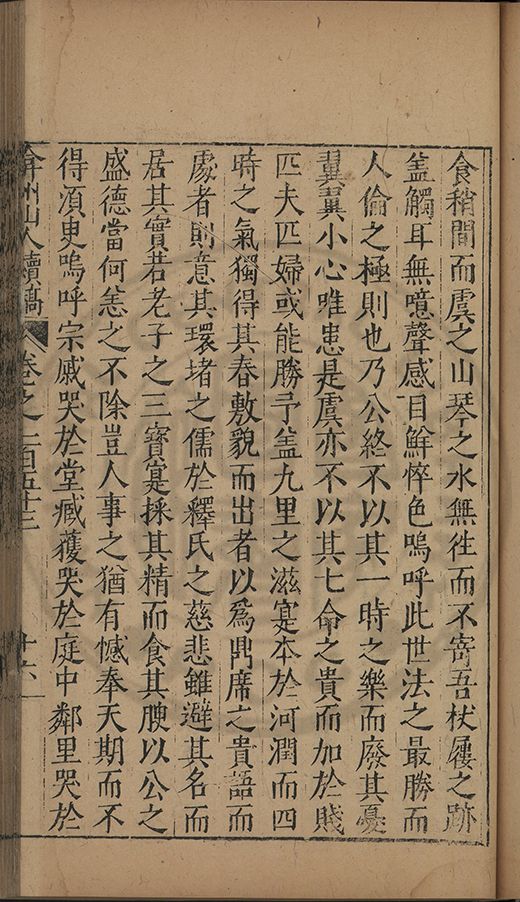 食稍間而虞之山琴之水無徃而不寄吾杖屨之跡
盖觸耳無噫聲感目鮮悴色嗚呼此世法之最勝而
人倫之極則也乃公終不以其一時之樂而廢其憂
翼翼小心唯患是虞亦不以其七命之貴而加於賤
匹夫匹婦或能勝予盖九里之滋寔本於河潤而四
時之氣獨得其春敷貌而出者以爲鼎席之貴語而
處者則意其環堵之儒於釋氏之慈悲雖避其名而
居其實若老子之三寶寔採其精而食其腴以公之
盛德當何恙之不除豈人事之猶有憾奉天期而不
得湏㬰嗚呼宗戚哭於堂臧獲哭於庭中鄰里哭於
弇州山人續稿 卷之一百五十三 十六